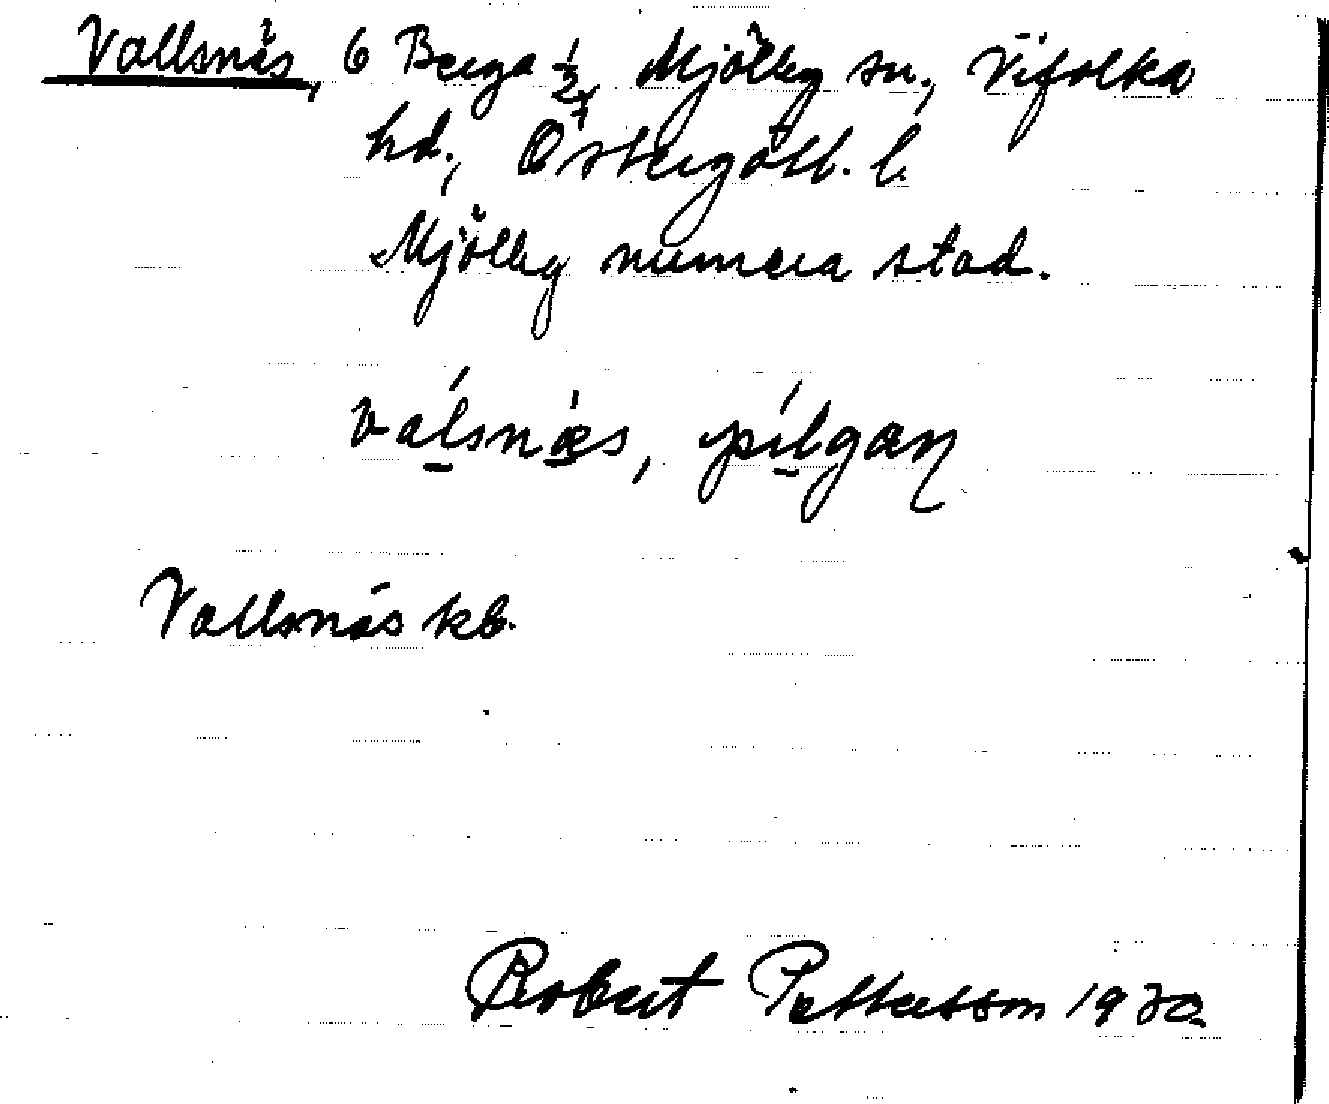 Vallsnäs, 6 Berga 1/2, Mjölby sn., Vifolka
hd., Östergötl. l.
Mjölby numera stad.
válsnæ̀s, pílgaɳ
Vallsnäs kb.
Robert Pettersson 1930.